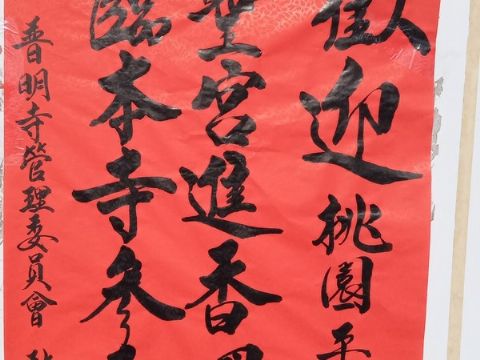 歡迎桃園平
聖宮進香團
臨本寺參
普明寺管理委員會